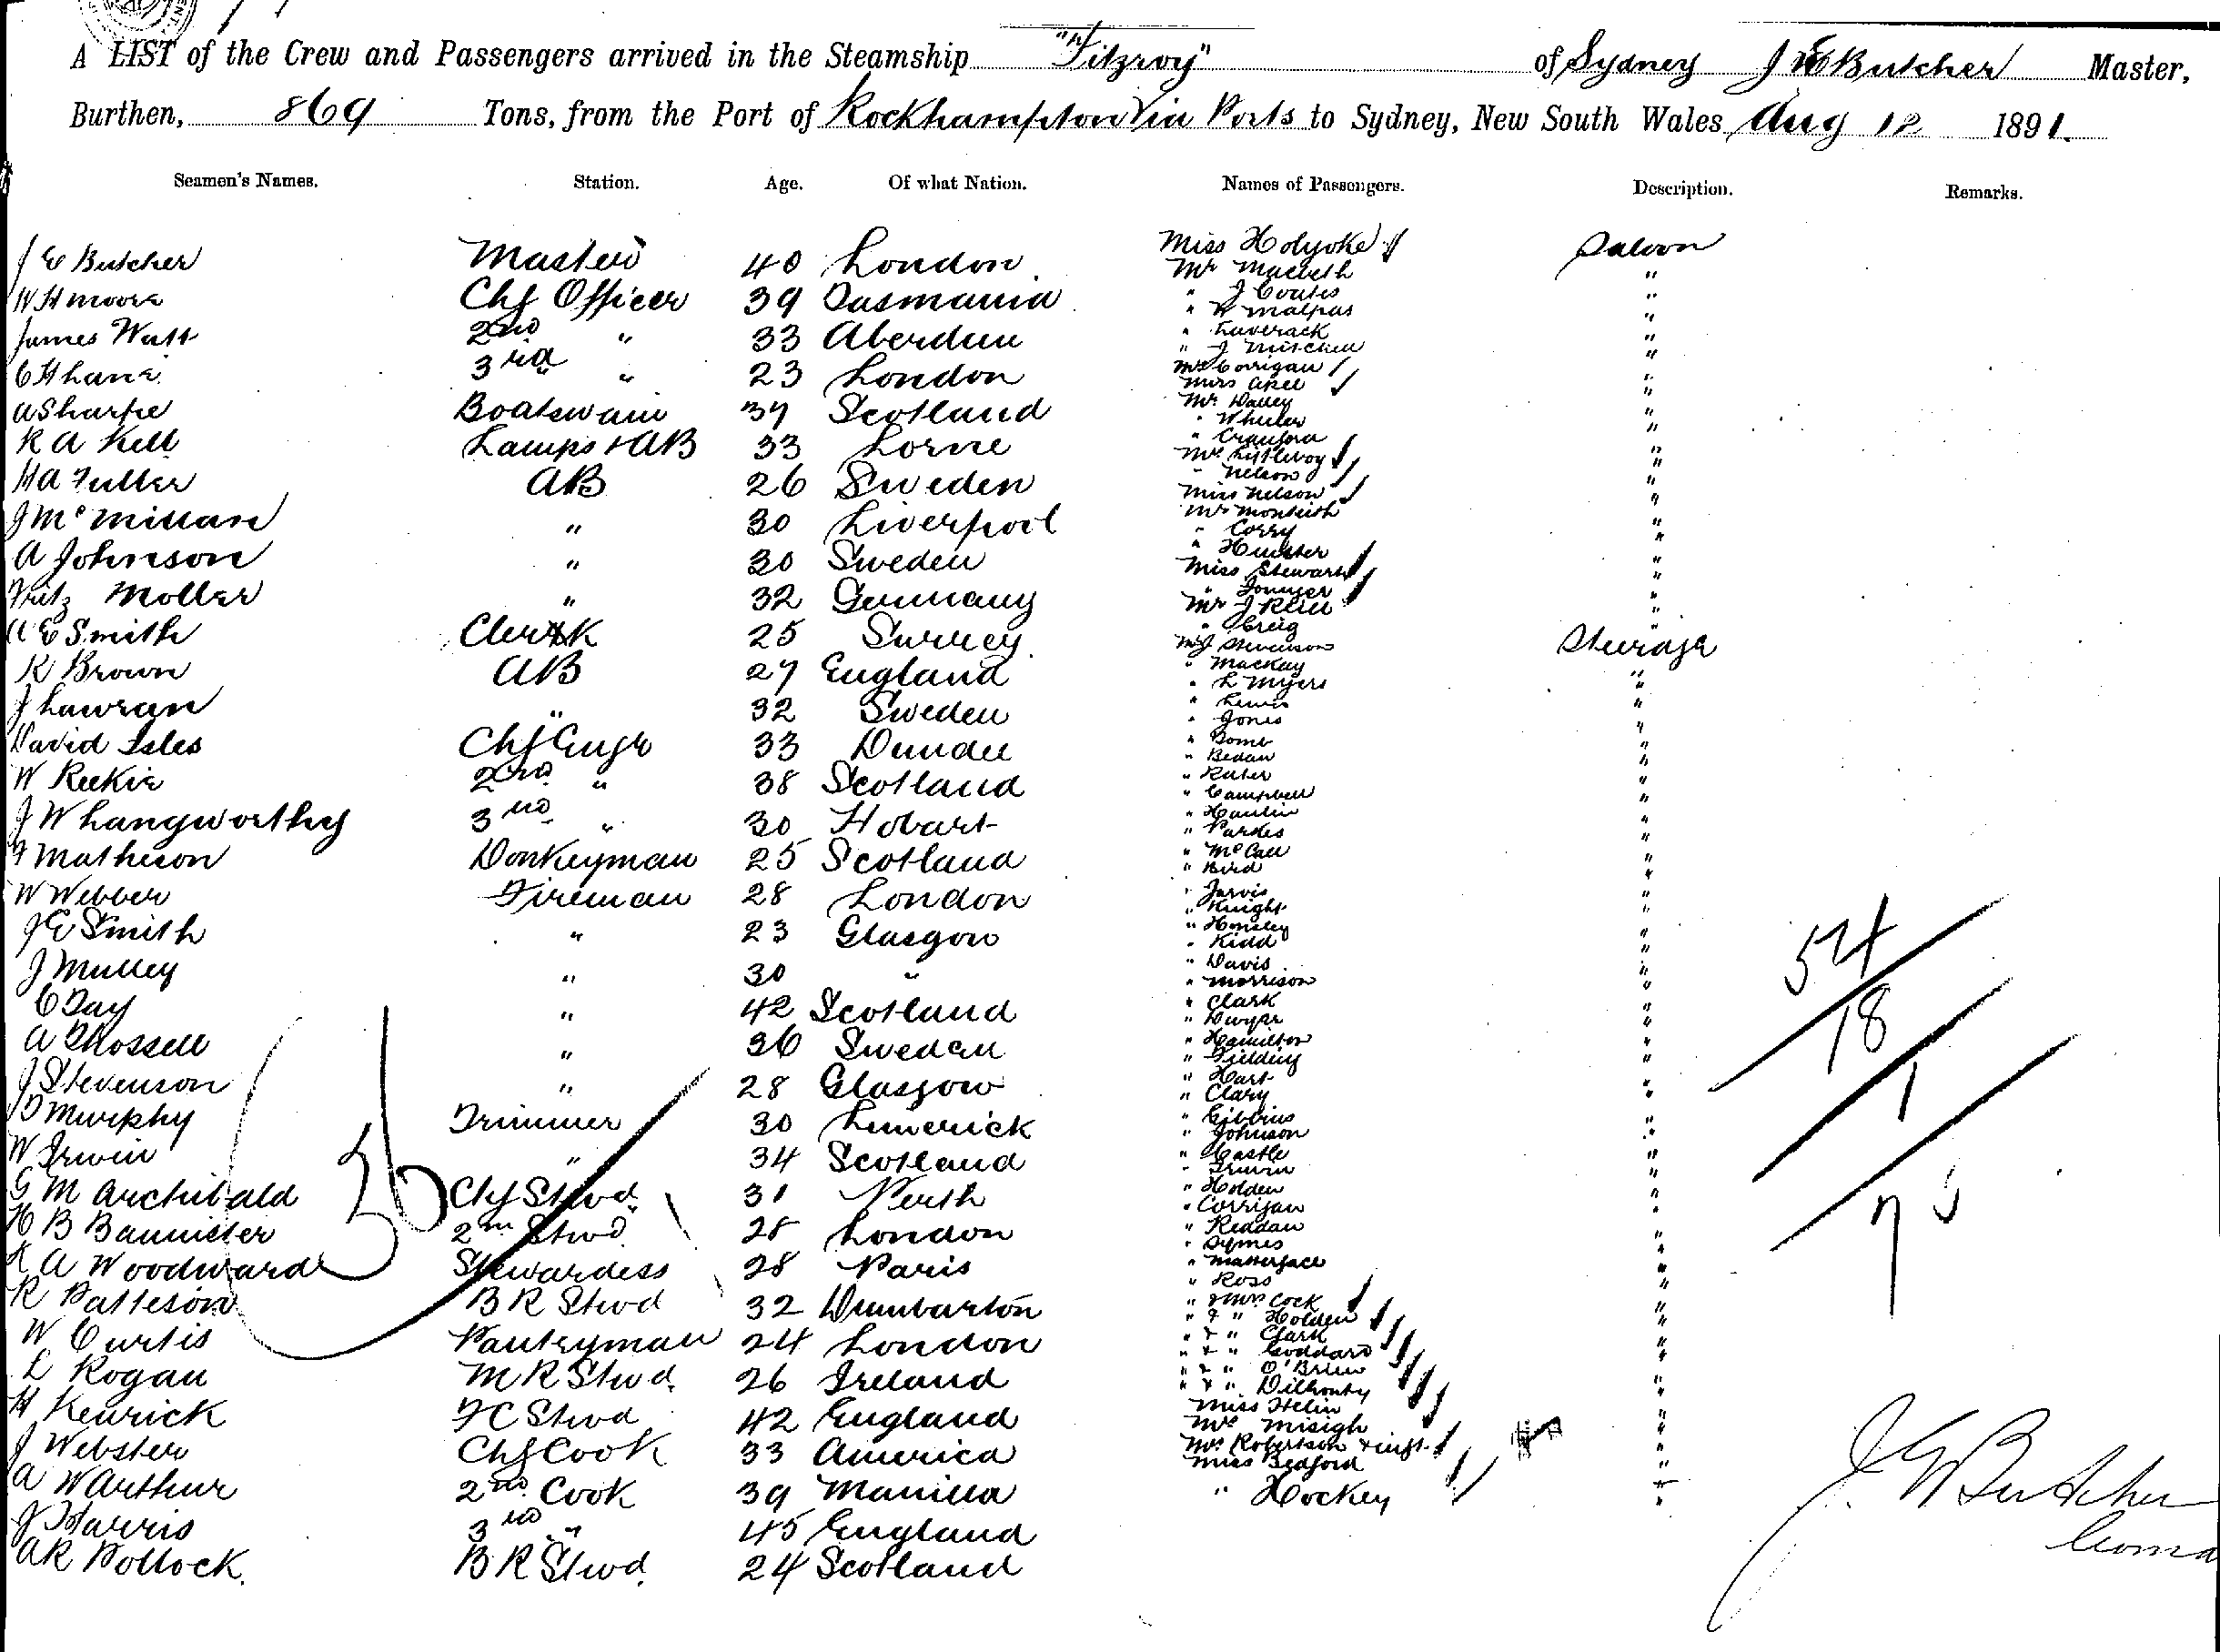 A LIST of the Crew and Passengers arrived in the Steamship "Fitzroy" of Sydney J E Butcher Master,
Burthen, 869 Tons, from the Port of Rockhampton Via Ports to Sydney, New South Wales Aug 12 1891.
Seamen's Names. Station. Age. Of what Nation. Names of Passengers. Description. Remarks.
J E Butcher Master 40 London
W H Moore Chf Officer 39 Tasmania
James Watt 2nd " 33 Aberdeen
C H Lane 3rd " 23 London
A Sharpe Boatswain 37 Scotland
R A Kell Lamps & AB 33 Lorne
H A Fuller AB 26 Sweden
J McMillan " 30 Liverpool
A Johnson " 30 Sweden
Fritz Moller " 32 Germany
A E Smith Clerk 25 Surrey
R Brown AB 27 England
J Lawran " 32 Sweden
David Isles Chf Engr 33 Dundee
W Reekie 2nd " 38 Scotland
J W Langworthy 3rd " 30 Hobart
F Matheson Donkeyman 25 Scotland
W Webber Fireman 28 London
J E Smith " 23 Glasgow
J Mulley " 30 "
C Day " 42 Scotland
A " 36 Sweden
J Stevenson " 28 Glasgow
D Murphy Trimmer 30 Limerick
W Irwin " 34 Scotland
G M Archibald Chf Stwd 31 Perth
H B Bannister 2nd Stwd 28 London
K A Woodward Stewardess 28 Paris
R Patteson B R Stwd 32 Dumbarton
W Curtis Pantryman 24 London
L Rogan M R Stwd 26 Ireland
H Kenrick F C Stwd 42 England
J Webster Chf Cook 33 America
A W Arthur 2nd Cook 39 Manilla
J Harris 3rd " 45 England
A R Pollock B R Stwd 24 Scotland
36
Miss Holyoke Saloon
Mr Macbeth "
" J Coutts "
" W Malpas "
" Laverack "
" J Mitchell "
Mrs Corrigan "
Miss Apell "
Mr Dalley "
" Wheeler "
" Craufora "
Mrs Littleboy "
" Nelson "
Miss Nelson "
Mr Monteith "
" Corry "
" Hunter "
Miss Stewart "
" "
Mr J "
" Creig "
Mr J Stevenson Steerage
" Mackay "
" L Myers "
" Lewis "
" Jones "
" Bomb "
" Bedan "
" "
" Campbell "
" "
" Parkes "
" McCall "
" Bird "
" Jarvis "
" Knight "
" Housley "
" Kidd "
" Davis "
" Morrison "
" Clark "
" Dwyer "
" Hamilton "
" Fielding "
" Hart "
" Clary "
" Gibbins "
" Johnson "
" Castle "
" Irwin "
" Holden "
" Corrigan "
" Reddan "
" Symes "
" Matterface "
" Ross "
" & Mrs Cock "
" & " Holden "
" & " Clark "
" & " Goddard "
" & " O'Brien "
" & " "
Miss Helin "
Mrs Misigh "
Mrs Robertson & inft "
Miss Bedford "
" Hockey "
54
18
1
73
J E Butcher